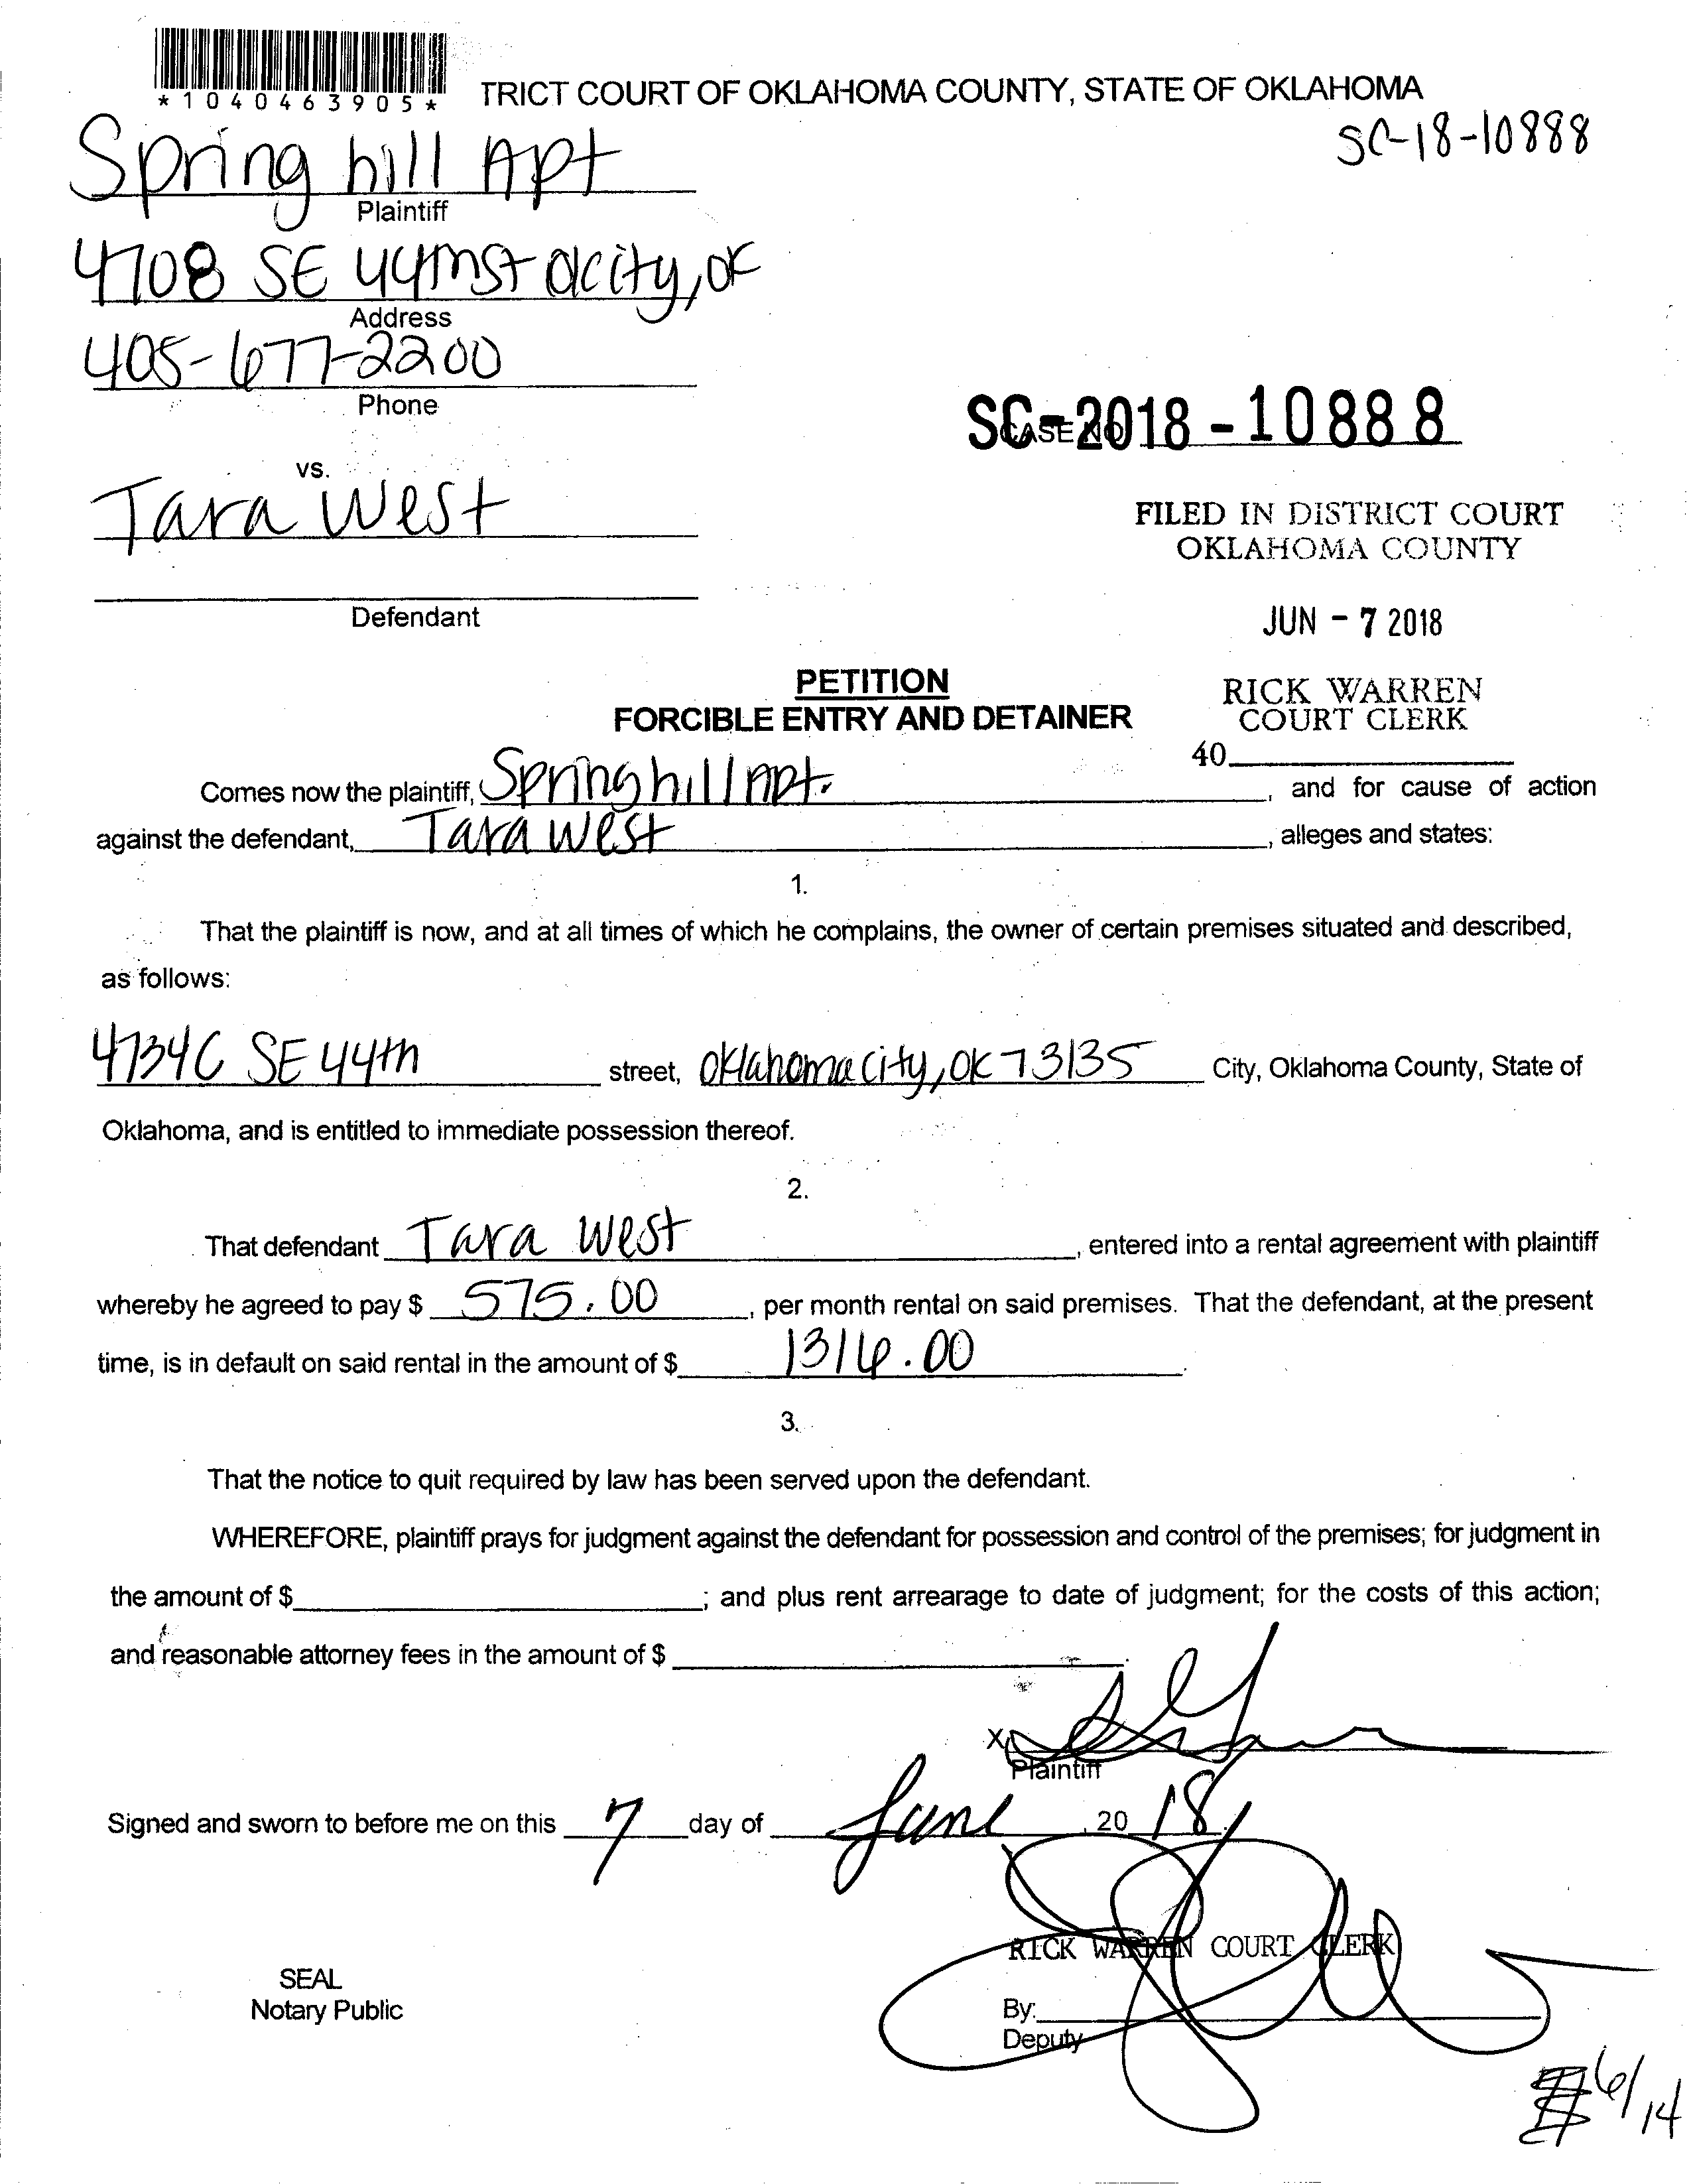 *1040463905*
TRICT COURT OF OKLAHOMA COUNTY, STATE OF OKLAHOMA
SC-18-10888
Spring hill Apt
Plaintiff
4708 SE 44th St okcity, ok
Address
405-677-2200
Phone
SC-2018-10888
CASE NO
vs.
Tara West
FILED IN DISTRICT COURT
OKLAHOMA COUNTY
Defendant
JUN - 7 2018
PETITION
FORCIBLE ENTRY AND DETAINER
RICK WARREN
COURT CLERK
40
Comes now the plaintiff, Spring hill Apt. , and for cause of action
against the defendant, Tara West , alleges and states:
1.
That the plaintiff is now, and at all times of which he complains, the owner of certain premises situated and described,
as follows:
4734C SE 44th street, Oklahoma city, OK 73135 City, Oklahoma County, State of
Oklahoma, and is entitled to immediate possession thereof.
2.
That defendant Tara West , entered into a rental agreement with plaintiff
whereby he agreed to pay $ 575.00 , per month rental on said premises. That the defendant, at the present
time, is in default on said rental in the amount of $ 1316.00 .
3.
That the notice to quit required by law has been served upon the defendant.
WHEREFORE, plaintiff prays for judgment against the defendant for possession and control of the premises; for judgment in
the amount of $ ; and plus rent arrearage to date of judgment; for the costs of this action;
and reasonable attorney fees in the amount of $ .
X
Plaintiff
Signed and sworn to before me on this 7 day of June , 20 18.
RICK WARREN COURT CLERK
SEAL
Notary Public
By:
Deputy
6/14